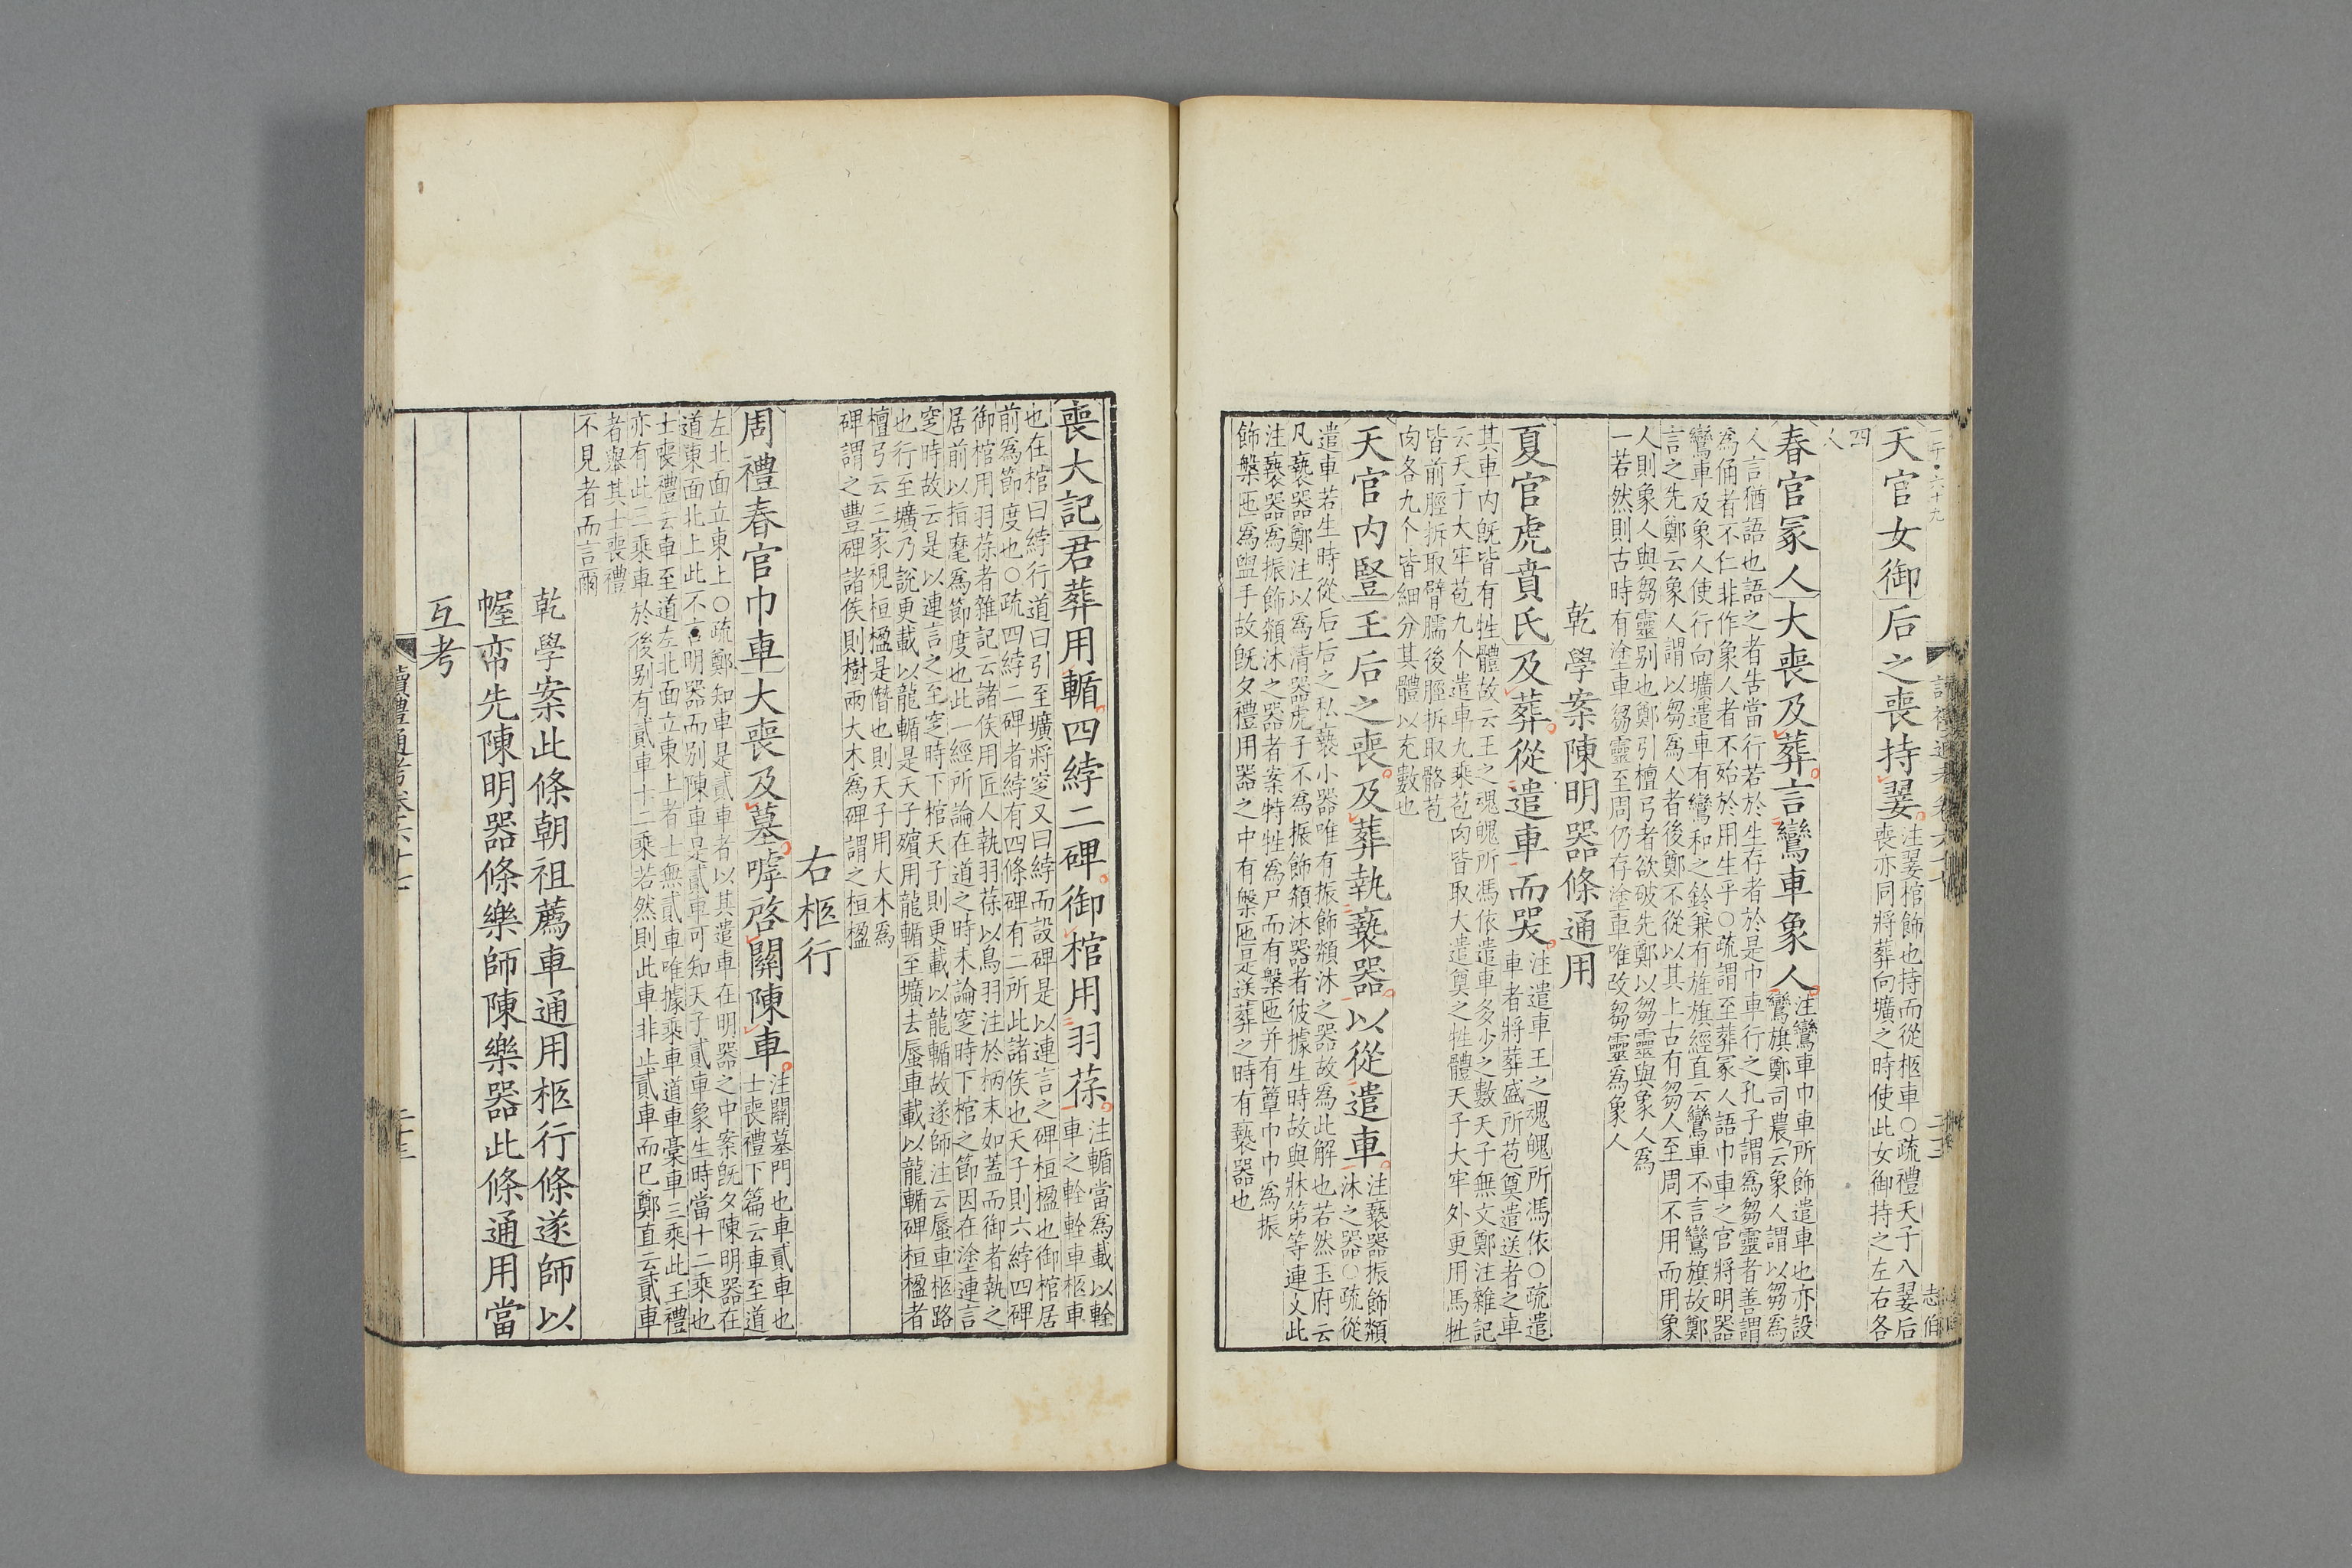 天官女御后之喪持翣注翣棺飾也持而從柩車○疏禮天子八翣后
喪亦同將葬向壙之時使此女御持之左右各
四
人
春官冢人大喪及葬言鸞車象人注鸞車巾車所飾遣車也亦設
鸞旗鄭司農云象人謂以芻爲
人言猶語也語之者告當行若於生存者於是巾車行之孔子謂爲芻靈者善謂
爲俑者不仁非作象人者不殆於用生乎○疏謂至葬冢人語巾車之官將明器
鸞車及象人使行向壙遣車有鸞和之鈴兼有旌旗經直云鸞車不言鸞旗故鄭
言之先鄭云象人謂以芻爲人者後鄭不從以其上古有芻人至周不用而用象
人則象人與芻靈别也鄭引檀弓者欲破先鄭以芻靈與象人爲
一若然則古時有塗車芻靈至周仍存塗車唯改芻靈爲象人
乾學案陳明器條通用
夏官虎賁氏及葬從遣車而哭注遣車王之魂魄所馮依○疏遣
車者將葬盛所苞奠遣送者之車
其車内旣皆有牲體故云王之魂魄所馮依遣車多少之數天子無文鄭注雜記
云天子大牢苞九个遣車九乘苞肉皆取大遣奠之牲體天子大牢外更用馬牲
皆前脛拆取臂臑後脛拆取骼苞
肉各九个皆細分其體以充數也
天官内豎王后之喪及葬執䙝器以從遣車注䙝器振飾頮
沐之器○疏從
遣車若生時從后后之私䙝小器唯有振飾頮沐之器故爲此解也若然玉府云
凡䙝器鄭注以爲清器虎子不爲振飾頮沐器者彼據生時故與牀笫等連文此
注䙝器爲振飾頮沐之器者案特牲爲尸而有槃匜并有簞巾巾爲振
飾槃匜爲盥手故旣夕禮用器之中有槃匜是送葬之時有䙝器也
喪大記君葬用輴四綍二碑御棺用羽葆注輴當爲載以輇
車之輇輇車柩車
也在棺曰綍行道曰引至壙將窆又曰綍而設碑是以連言之碑桓楹也御棺居
前爲節度也○疏四綍二碑者綍有四條碑有二所此諸侯也天子則六綍四碑
御棺用羽葆者雜記云諸侯用匠人執羽葆以鳥羽注於柄末如蓋而御者執之
居前以指麾爲節度也此一經所論在道之時未論窆時下棺之節因在塗連言
窆時故云是以連言之至窆時下棺天子則更載以龍輴故遂師注云蜃車柩路
也行至壙乃說更載以龍輴是天子殯用龍輴至壙去蜃車載以龍輴碑桓楹者
檀弓云三家視桓楹是僭也則天子用大木爲
碑謂之豐碑諸侯則樹兩大木爲碑謂之桓楹
右柩行
周禮春官巾車大喪及墓嘑啓關陳車注關墓門也車貳車也
士喪禮下篇云車至道
左北面立東上○疏鄭知車是貳車者以其遣車在明器之中案旣夕陳明器在
道東面北上此不言明器而别陳車是貳車可知天子貳車象生時當十二乘也
士喪禮云車至道左北面立東上者士無貳車唯據乘車道車槀車三乘此王禮
亦有此三乘車於後别有貳車十二乘若然則此車非止貳車而已鄭直云貳車
者舉其士喪禮
不見者而言爾
乾學案此條朝祖薦車通用柩行條遂師以
幄帟先陳明器條樂師陳樂器此條通用當
互考